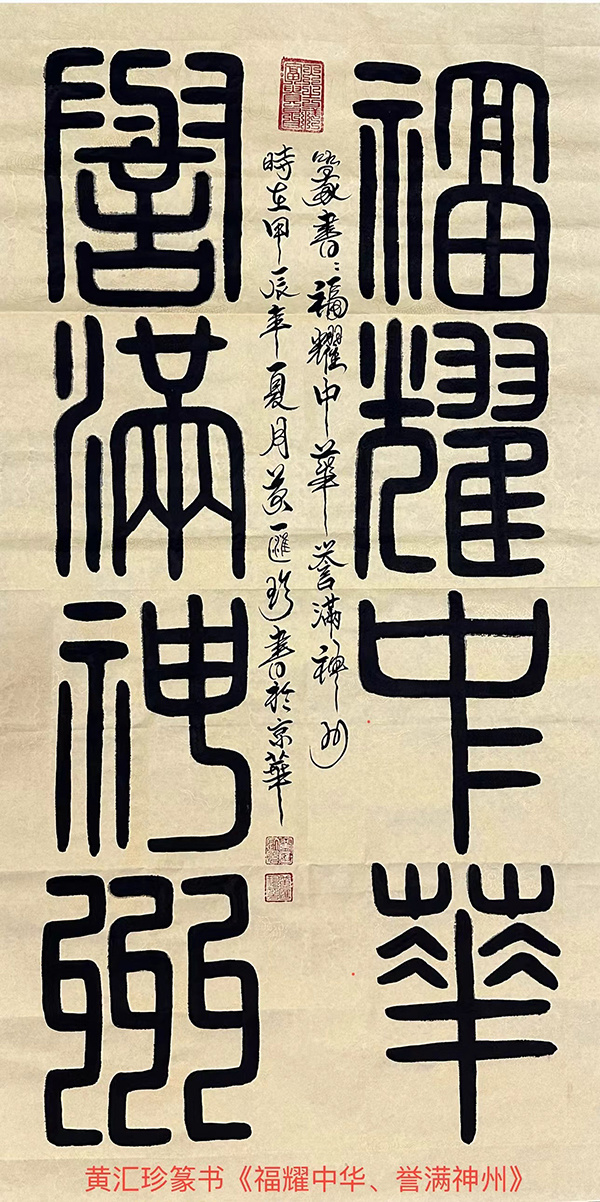 福耀中華
譽滿神州
篆書：福耀中華譽滿神州
時在甲辰年夏月黄匯珍書於京華
黄汇珍篆书《福耀中华、誉满神州》